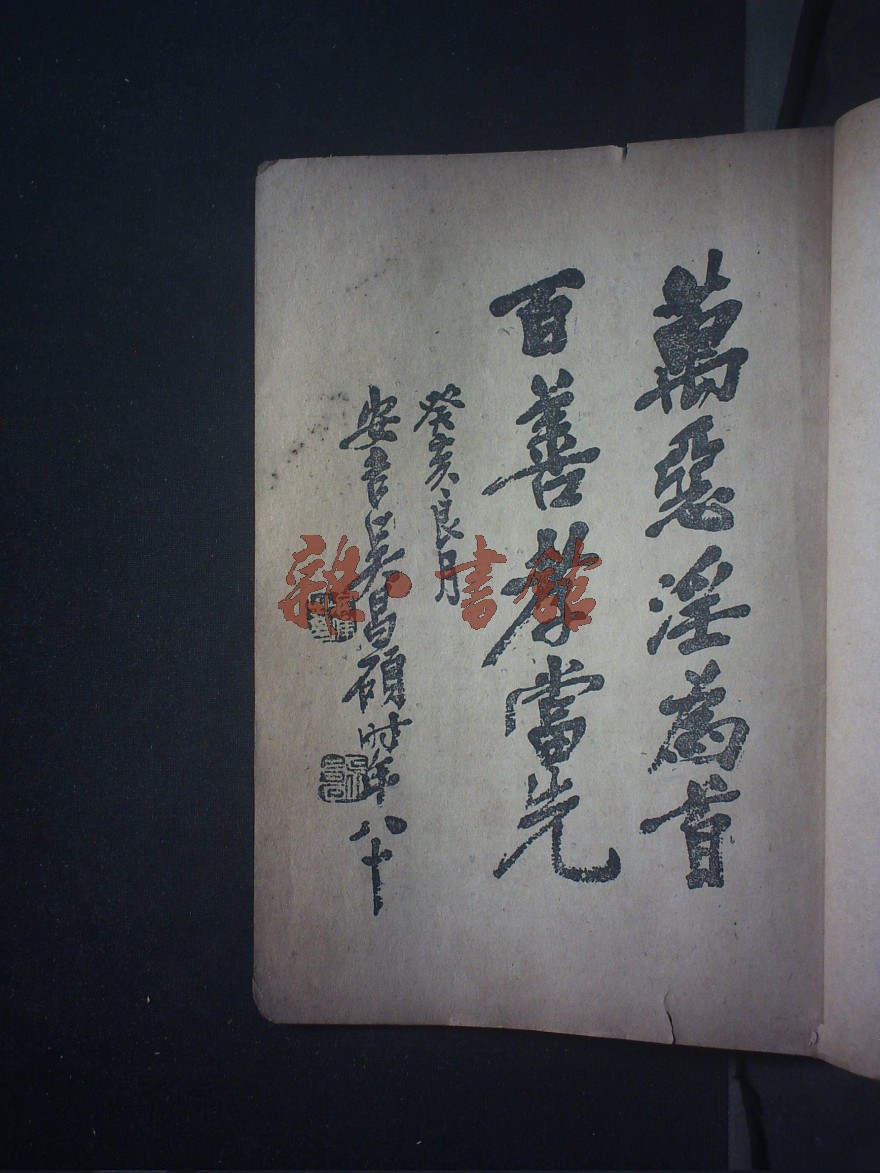 萬惡淫為首
百善孝當先
癸亥良月
安吉吳昌碩時年八十
雜·書館